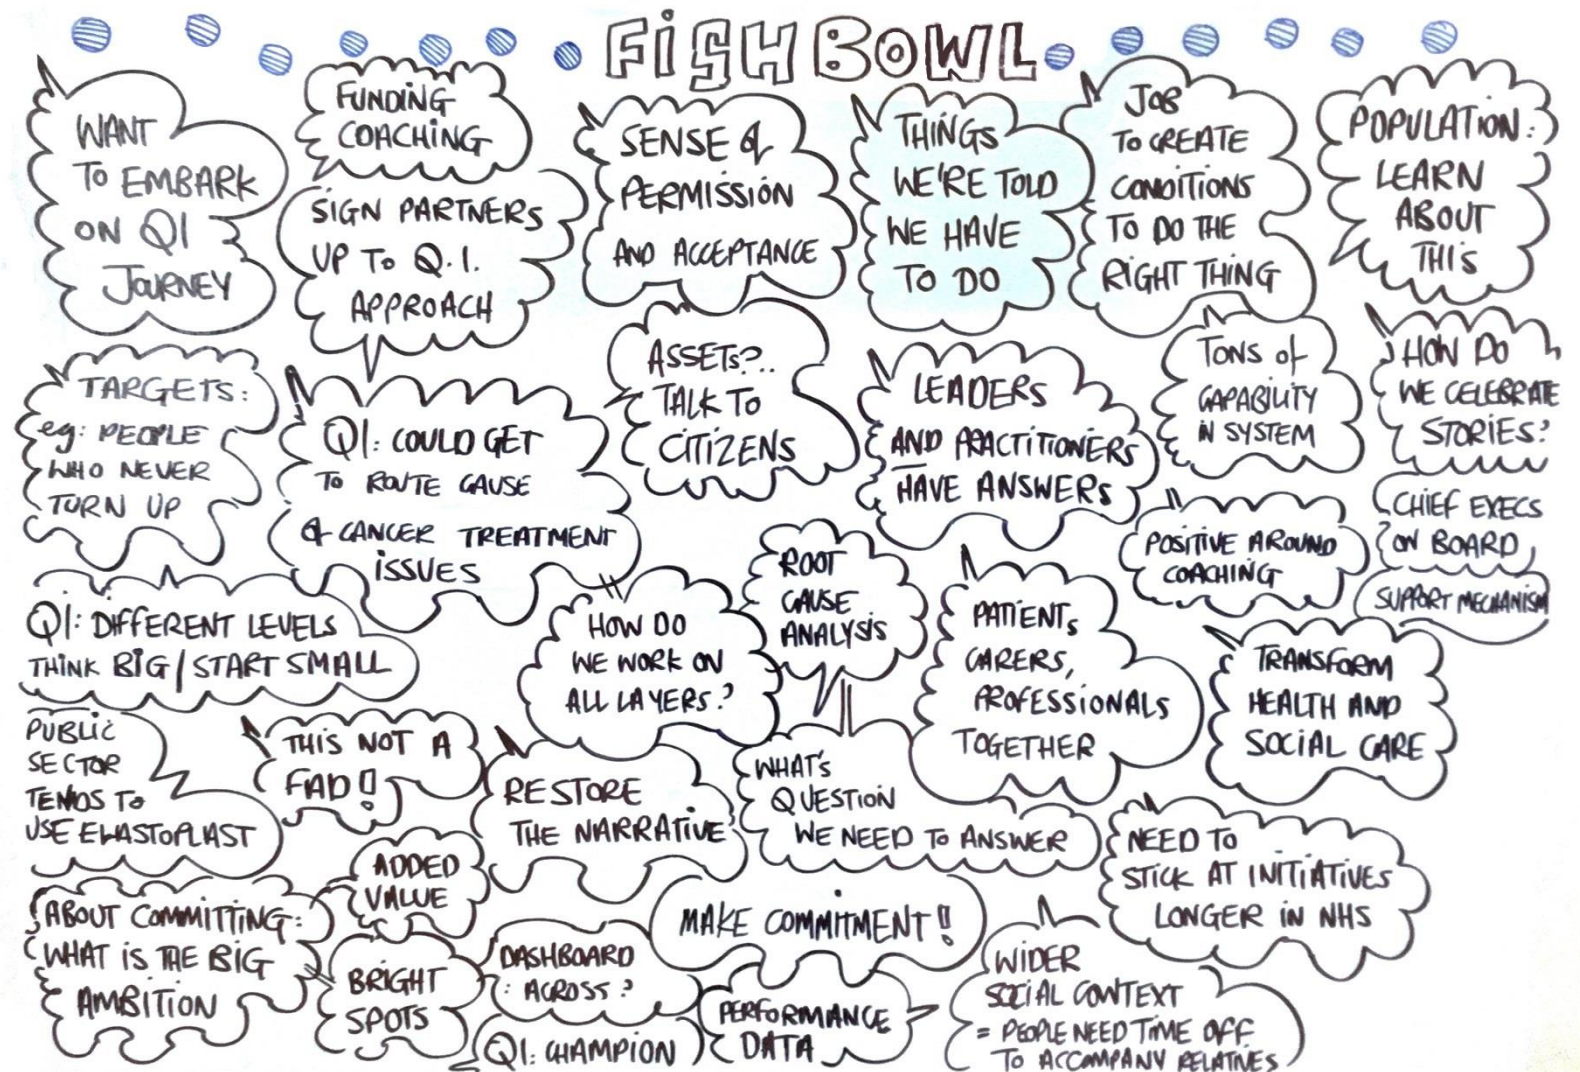 FISH BOWL
WANT
TO EMBARK
ON QI
JOURNEY
FUNDING
COACHING
SIGN PARTNERS
UP TO Q.I.
APPROACH
SENSE of
PERMISSION
AND ACCEPTANCE
THINGS
WE'RE TOLD
WE HAVE
TO DO
JOB
TO CREATE
CONDITIONS
TO DO THE
RIGHT THING
POPULATION:
LEARN
ABOUT
THIS
TARGETS:
eg: PEOPLE
WHO NEVER
TURN UP
QI: COULD GET
TO ROUTE CAUSE
of CANCER TREATMENT
ISSUES
ASSETS?..
TALK TO
CITIZENS
LEADERS
AND PRACTITIONERS
HAVE ANSWERS
TONS of
CAPABILITY
IN SYSTEM
HOW DO
WE CELEBRATE
STORIES?
CHIEF EXECS
ON BOARD,
SUPPORT MECHANISM
POSITIVE AROUND
COACHING
QI: DIFFERENT LEVELS
THINK BIG / START SMALL
HOW DO
WE WORK ON
ALL LAYERS?
ROOT
CAUSE
ANALYSIS
PATIENTS
CARERS,
PROFESSIONALS
TOGETHER
TRANSFORM
HEALTH AND
SOCIAL CARE
PUBLIC
SECTOR
TENDS TO
USE ELASTOPLAST
THIS NOT A
FAD!!
RESTORE
THE NARRATIVE
WHAT'S
QUESTION
WE NEED TO ANSWER
NEED TO
STICK AT INITIATIVES
LONGER IN NHS
ABOUT COMMITTING:
WHAT IS THE BIG
AMBITION
ADDED
VALUE
BRIGHT
SPOTS
DASHBOARD
ACROSS?
QI: CHAMPION
MAKE COMMITMENT!!
PERFORMANCE
DATA
WIDER
SOCIAL CONTEXT
= PEOPLE NEED TIME OFF
TO ACCOMPANY RELATIVES